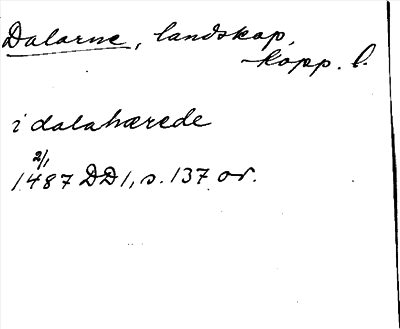 Dalarne, landskap,
Kopp. l.
i dalahærede
2/1
1487 DD1, s. 137 or.